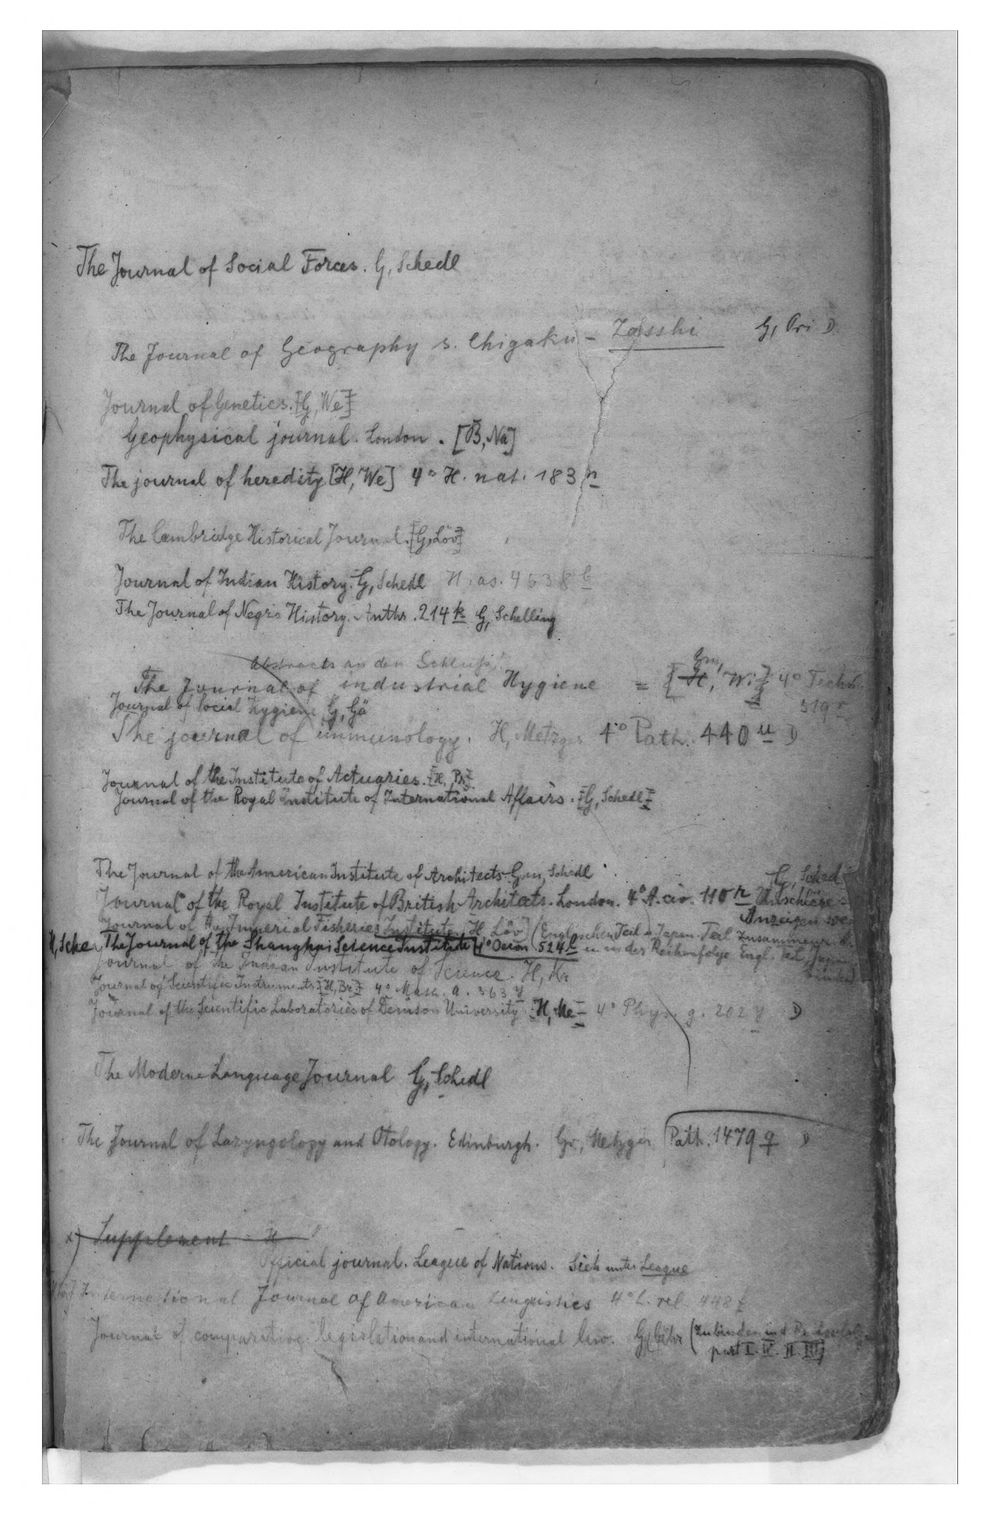 The Journal of Social Forces. G, Schedl
The Journal of Geography s. Chigaku - Zasshi G, Ori D.
Journal of Genetics. [G, We]
Geophysical journal. London. [B, Na]
The journal of heredity [H, We] 4° H. nat. 183 n
The Cambridge Historical Journal. [G, Löv]
Journal of Indian History. G, Schedl H. as. 4538
The Journal of Negro History. Anthr. 214 k G, Schelling
Abstracts an den Schluß
The Journal of industrial Hygiene = [H, Wi] 4° Techn. 519
Journal of Social Hygiene G, Gä
The journal of immunology. H, Metzger 4° Path. 440 u D
Journal of the Institute of Actuaries. [H, Br]
Journal of the Royal Institute of International Affairs. [G, Schedl]
The Journal of the American Institute of Architects. Gm, Schedl
Journal of the Royal Institute of British Architects. London. 4° A. civ. 110 r G, Schedl Umschläge Anzeigen
Journal of the Imperial Fisheries Institute H, Löv (Englischen Teil u. Japan. Teil zusammen
H, Sche The Journal of the Shanghai Science Institute 4° Ocean 524 u in der Reihenfolge Engl. Teil, Japan.
Journal of the Indian Institute of Science. H, Kr
Journal of Scientific Instruments [H, Br] 4° Math. a. 363 y
Journal of the Scientific Laboratories of Denison University [H, Me] 4° Phys. g. 202 y D
The Modern Language Journal G, Schedl
The Journal of Laryngology and Otology. Edinburgh. Gr, Metzger Path. 1479 q D
x) Supplement H
Official journal. League of Nations. Sieh unter League
International Journal of American Linguistics 4° L. rel. 448
Journal of comparative legislation and international law. G, (Zubinden
part I. IV. II. III)